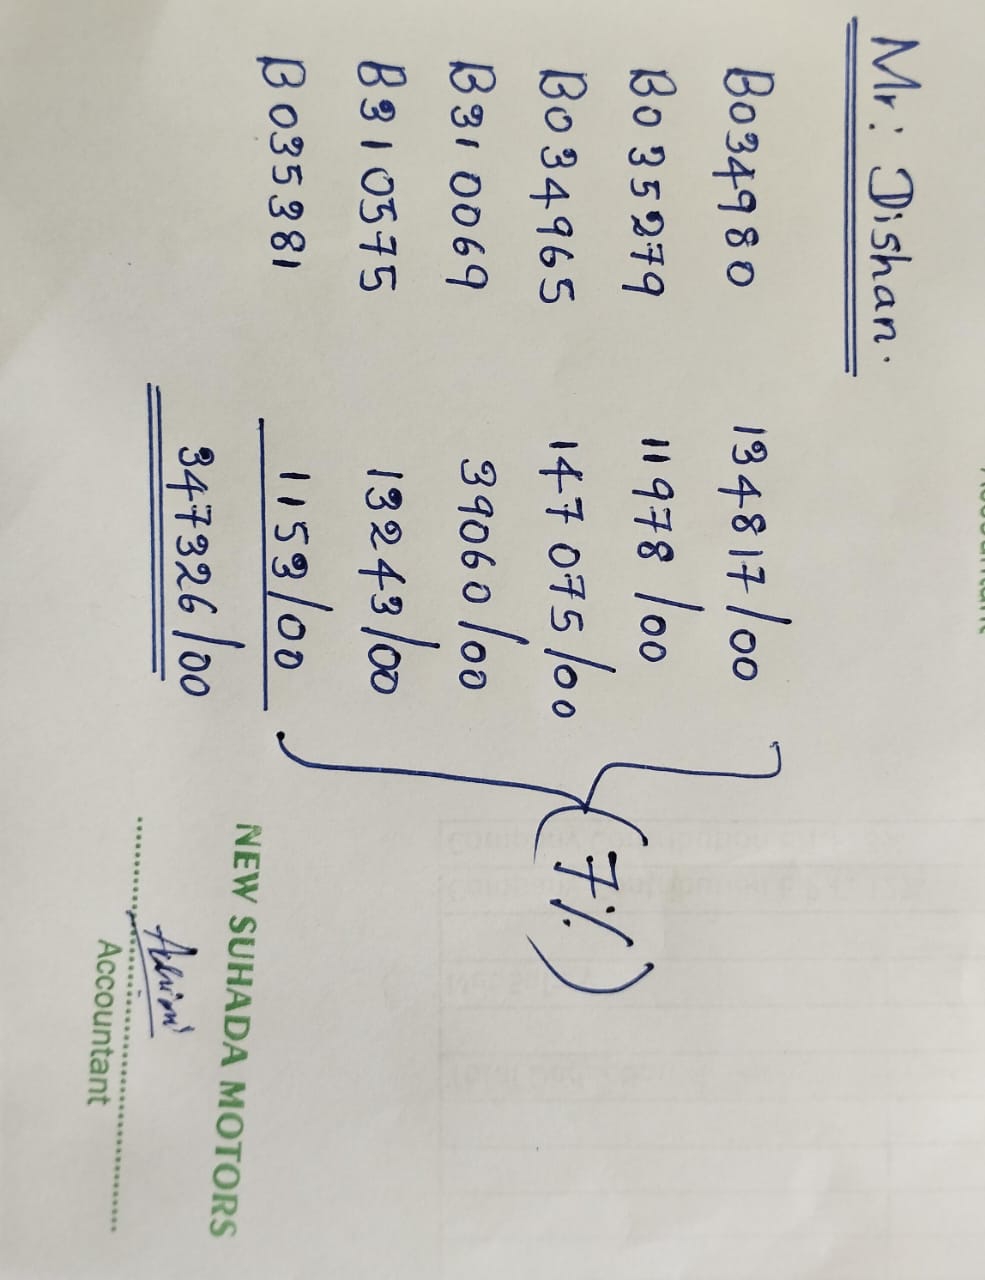 Mr: Dishan.
B034980 134817/00
B035279 11978/00
B034965 147075/00
B310069 39060/00
B310575 13243/00
B035381 1153/00
347326/00
(7%)
NEW SUHADA MOTORS
Accountant